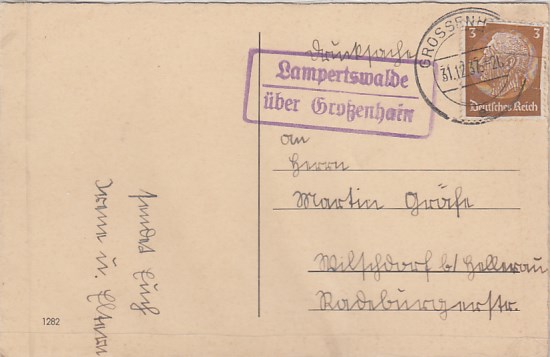 Drucksache
Lampertswalde
über Großenhain
GROSSENH
31.12.37.-21
3 3
Deutsches Reich
An
Herrn
Martin Gräfe
Wilschdorf b/ Hellerau
Radeburgerstr.
sendet Euch
Irene u. Eltern
1282